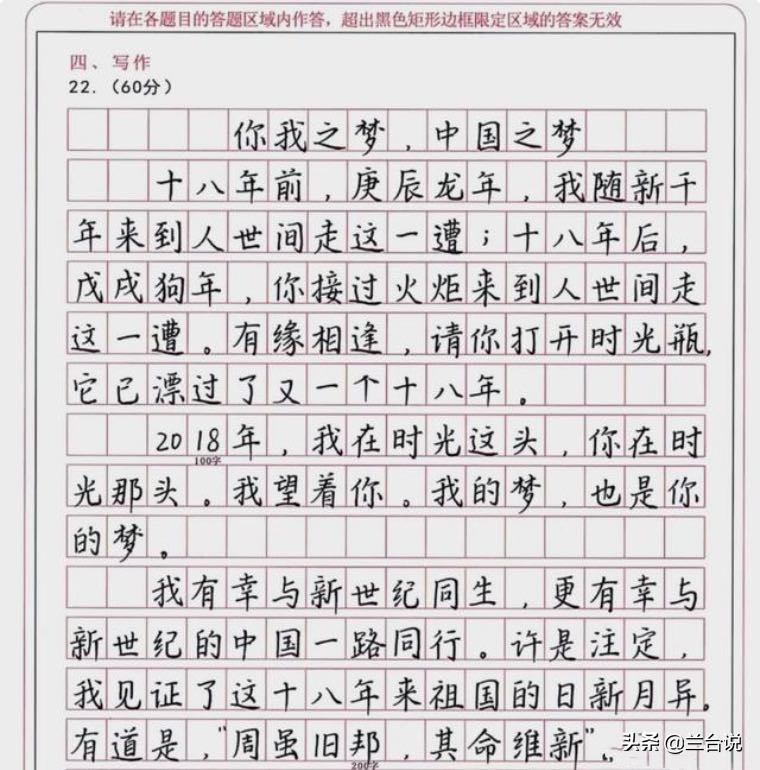 请在各题目的答题区域内作答，超出黑色矩形边框限定区域的答案无效
四、写作
22.（60分）
你我之梦，中国之梦
十八年前，庚辰龙年，我随新千
年来到人世间走这一遭；十八年后，
戊戌狗年，你接过火炬来到人世间走
这一遭。有缘相逢，请你打开时光瓶，
它已漂过了又一个十八年。
2018年，我在时光这头，你在时
100字
光那头。我望着你。我的梦，也是你
的梦。
我有幸与新世纪同生，更有幸与
新世纪的中国一路同行。许是注定，
我见证了这十八年来祖国的日新月异。
有道是，"周虽旧邦，其命维新"。
200字
头条 @兰台说